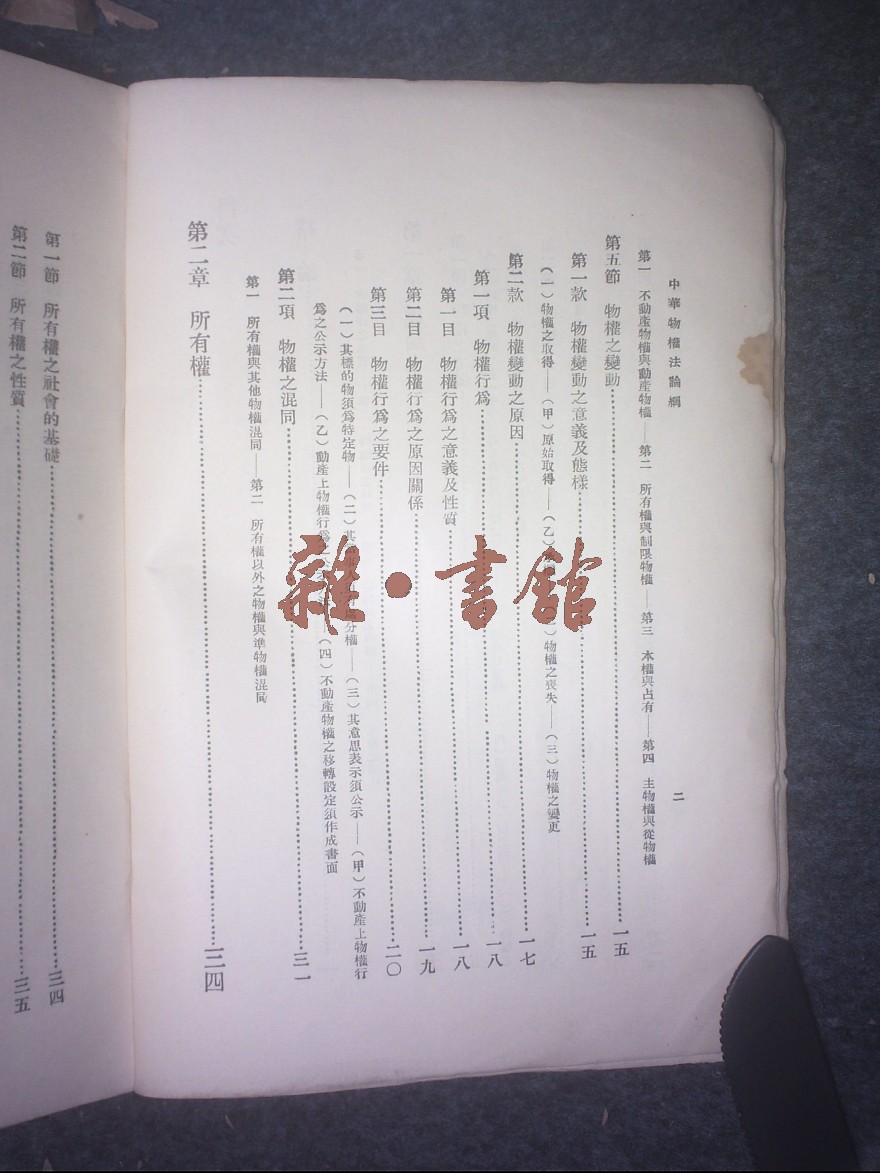 中華物權法論綱
二
第一 不動產物權與動產物權——第二 所有權與制限物權——第三 本權與占有——第四 主物權與從物權
第五節 物權之變動 一五
第一款 物權變動之意義及態樣 一五
(一)物權之取得——(甲)原始取得——(乙) 物權之喪失——(三)物權之變更
第二款 物權變動之原因 一七
第一項 物權行爲 一八
第一目 物權行爲之意義及性質 一八
第二目 物權行爲之原因關係 一九
第三目 物權行爲之要件 二〇
(一)其標的物須爲特定物——(二)其 分權——(三)其意思表示須公示——(甲)不動產上物權行
爲之公示方法——(乙)動產上物權行爲 (四)不動產物權之移轉設定須作成書面
第二項 物權之混同 三一
第一 所有權與其他物權混同——第二 所有權以外之物權與準物權混同
第二章 所有權 三四
第一節 所有權之社會的基礎 三四
第二節 所有權之性質 三五
雜·書館